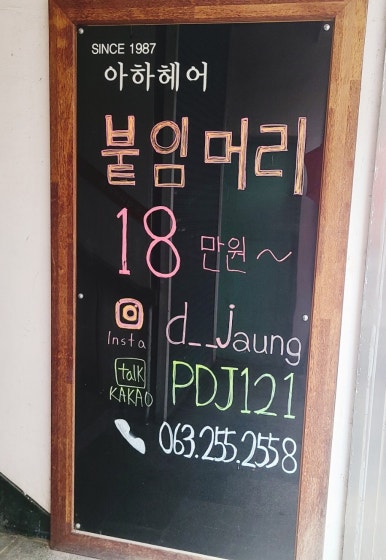 SINCE 1987
아하헤어
붙임머리
18 만원~
d__jaung
Insta
talk
KAKAO
PDJ121
063.255.2558